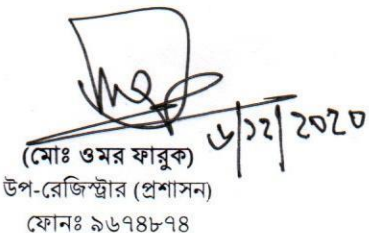 ৬/১২/২০২০
(মোঃ ওমর ফারুক)
উপ-রেজিস্ট্রার (প্রশাসন)
ফোনঃ ৯৬৭৪৮৭৪